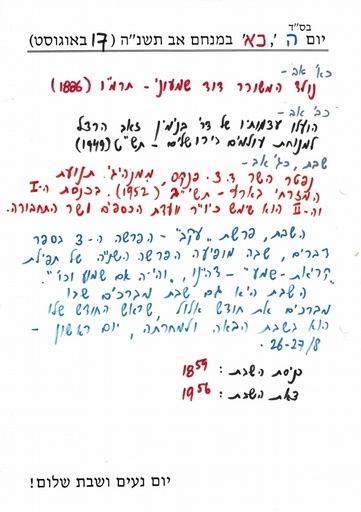 בס"ד
יום ה', כא' במנחם אב תשנ"ה (17 באוגוסט)
כא' אב -
נולד המשורר דוד שמעוני - תרמ"ו (1886)
כב' אב -
הועלו עצמותיו של דר' בנימין זאב הרצל
למנוחת עולמים בירושלים - תש"ט (1949)
שבת, כג' אב -
נפטר השר ד.צ. פנקס, ממנהיגי תנועת
המזרחי בארץ - תשי"ב (1952). בכנסת ה-I
וה-II הוא שימש כיו"ר וועדת הכספים ושר התחבורה.
השבת, פרשת "עקב" - הפרשה ה-3 בספר
דברים, שבה מופיעה הפרשה השניה של תפילת
"קריאת-שמע" - דהינו, "והיה אם שמוע וכו'".
השבת היא גם שבת מברכים שבו
מברכים את חודש אלול, שראש החודש שלו
הוא בשבת הבאה ולמחרתה, יום ראשון -
26-27/8.
כניסת השבת: 18⁵⁹
צאת השבת: 19⁵⁶
יום נעים ושבת שלום!